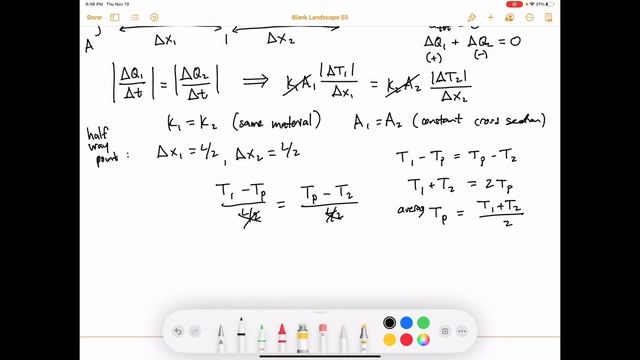 6:56 PM Thu Nov 19
Done
Blank Landscape 55
21%
A
Δx₁
Δx₂
ΔQ₁ + ΔQ₂ = 0
(+) (-)
|ΔQ₁/Δt| = |ΔQ₂/Δt| ⟹ k₁A₁ |ΔT₁|/Δx₁ = k₂A₂ |ΔT₂|/Δx₂
k₁ = k₂ (same material) A₁ = A₂ (constant cross section)
half
way
point: Δx₁ = L/2, Δx₂ = L/2
T₁ - Tp = Tp - T₂
(T₁ - Tp)/(L/2) = (Tp - T₂)/(L/2)
T₁ + T₂ = 2Tp
average Tp = (T₁ + T₂)/2